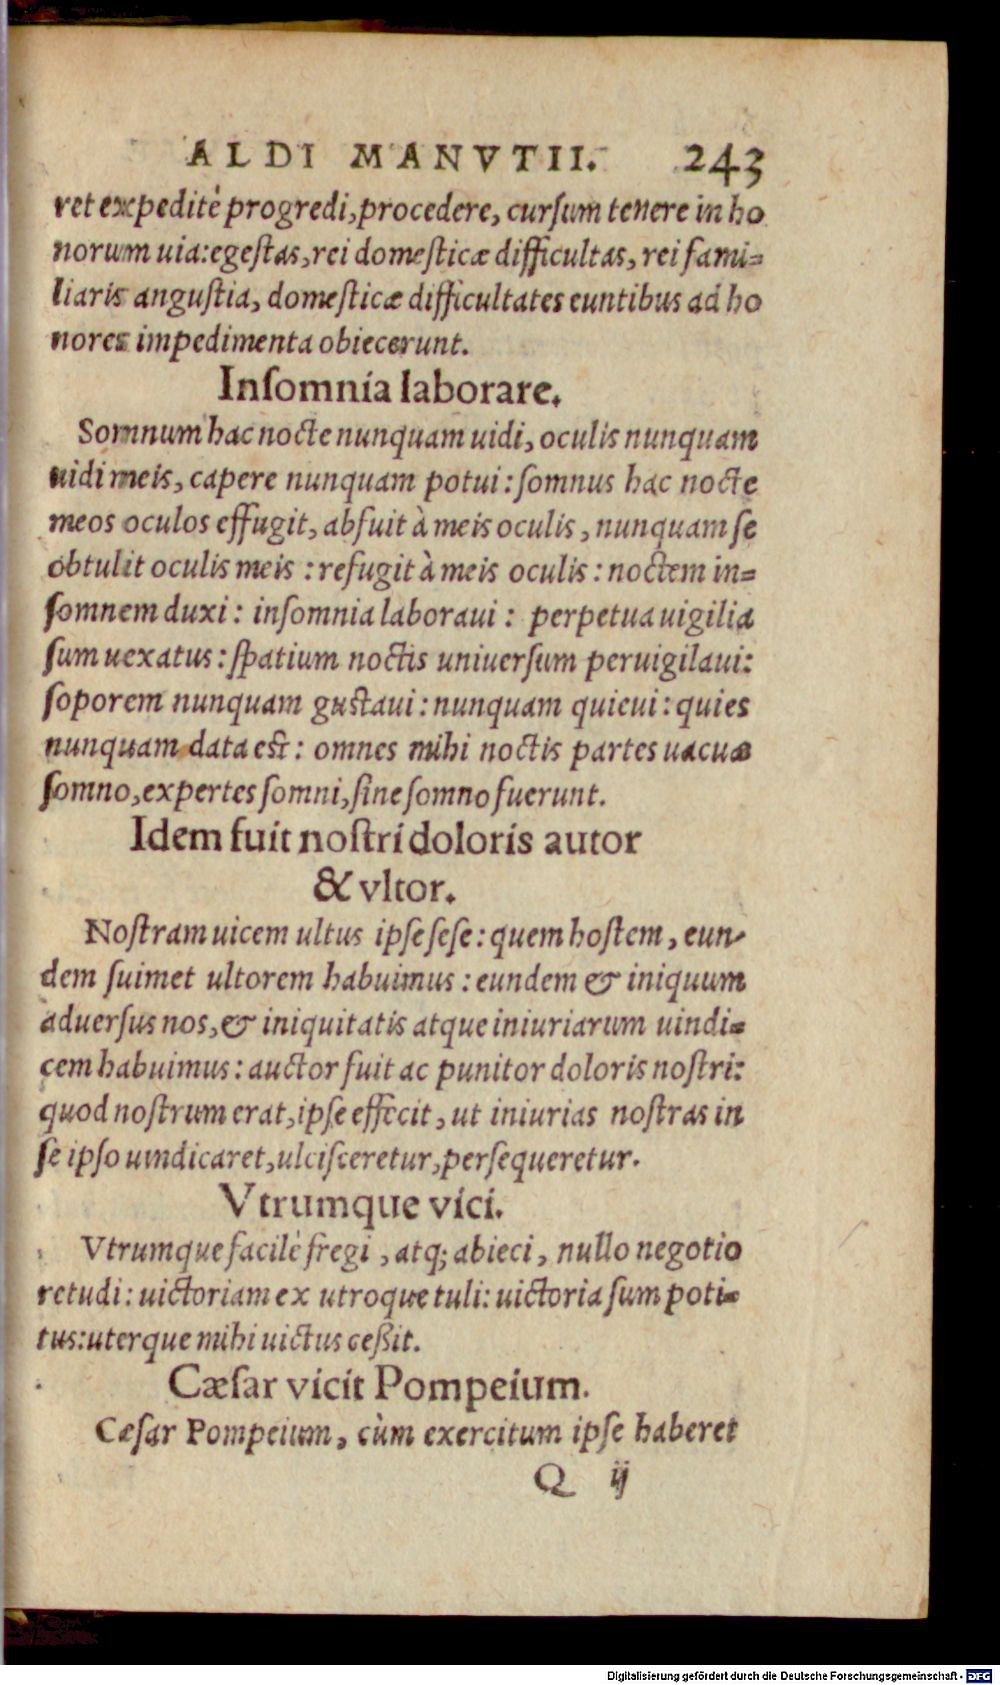 ALDI MANVTII. 243
ret expeditè progredi, procedere, cursum tenere in ho
norum uia: egestas, rei domesticæ difficultas, rei fami-
liaris angustia, domesticæ difficultates euntibus ad ho
nores impedimenta obiecerunt.
Insomnia laborare.
Somnum hac nocte nunquam uidi, oculis nunquam
uidi meis, capere nunquam potui: somnus hac nocte
meos oculos effugit, absuit à meis oculis, nunquam se
obtulit oculis meis: refugit à meis oculis: noctem in-
somnem duxi: insomnia laboraui: perpetua uigilia
sum uexatus: spatium noctis uniuersum peruigilaui:
soporem nunquam gustaui: nunquam quieui: quies
nunquam data est: omnes mihi noctis partes uacuæ
somno, expertes somni, sine somno fuerunt.
Idem fuit nostri doloris autor
& vltor.
Nostram uicem ultus ipse sese: quem hostem, eun-
dem suimet ultorem habuimus: eundem & iniquum
aduersus nos, & iniquitatis atque iniuriarum uindi-
cem habuimus: auctor fuit ac punitor doloris nostri:
quod nostrum erat, ipse effecit, ut iniurias nostras in
se ipso uindicaret, ulcisceretur, persequeretur.
Vtrumque vici.
Vtrumque facilè fregi, atq; abieci, nullo negotio
retudi: uictoriam ex utroque tuli: uictoria sum poti-
tus: uterque mihi uictus ceßit.
Cæsar vicit Pompeium.
Cæsar Pompeium, cùm exercitum ipse haberet
Q ij
Digitalisierung gefördert durch die Deutsche Forschungsgemeinschaft - DFG